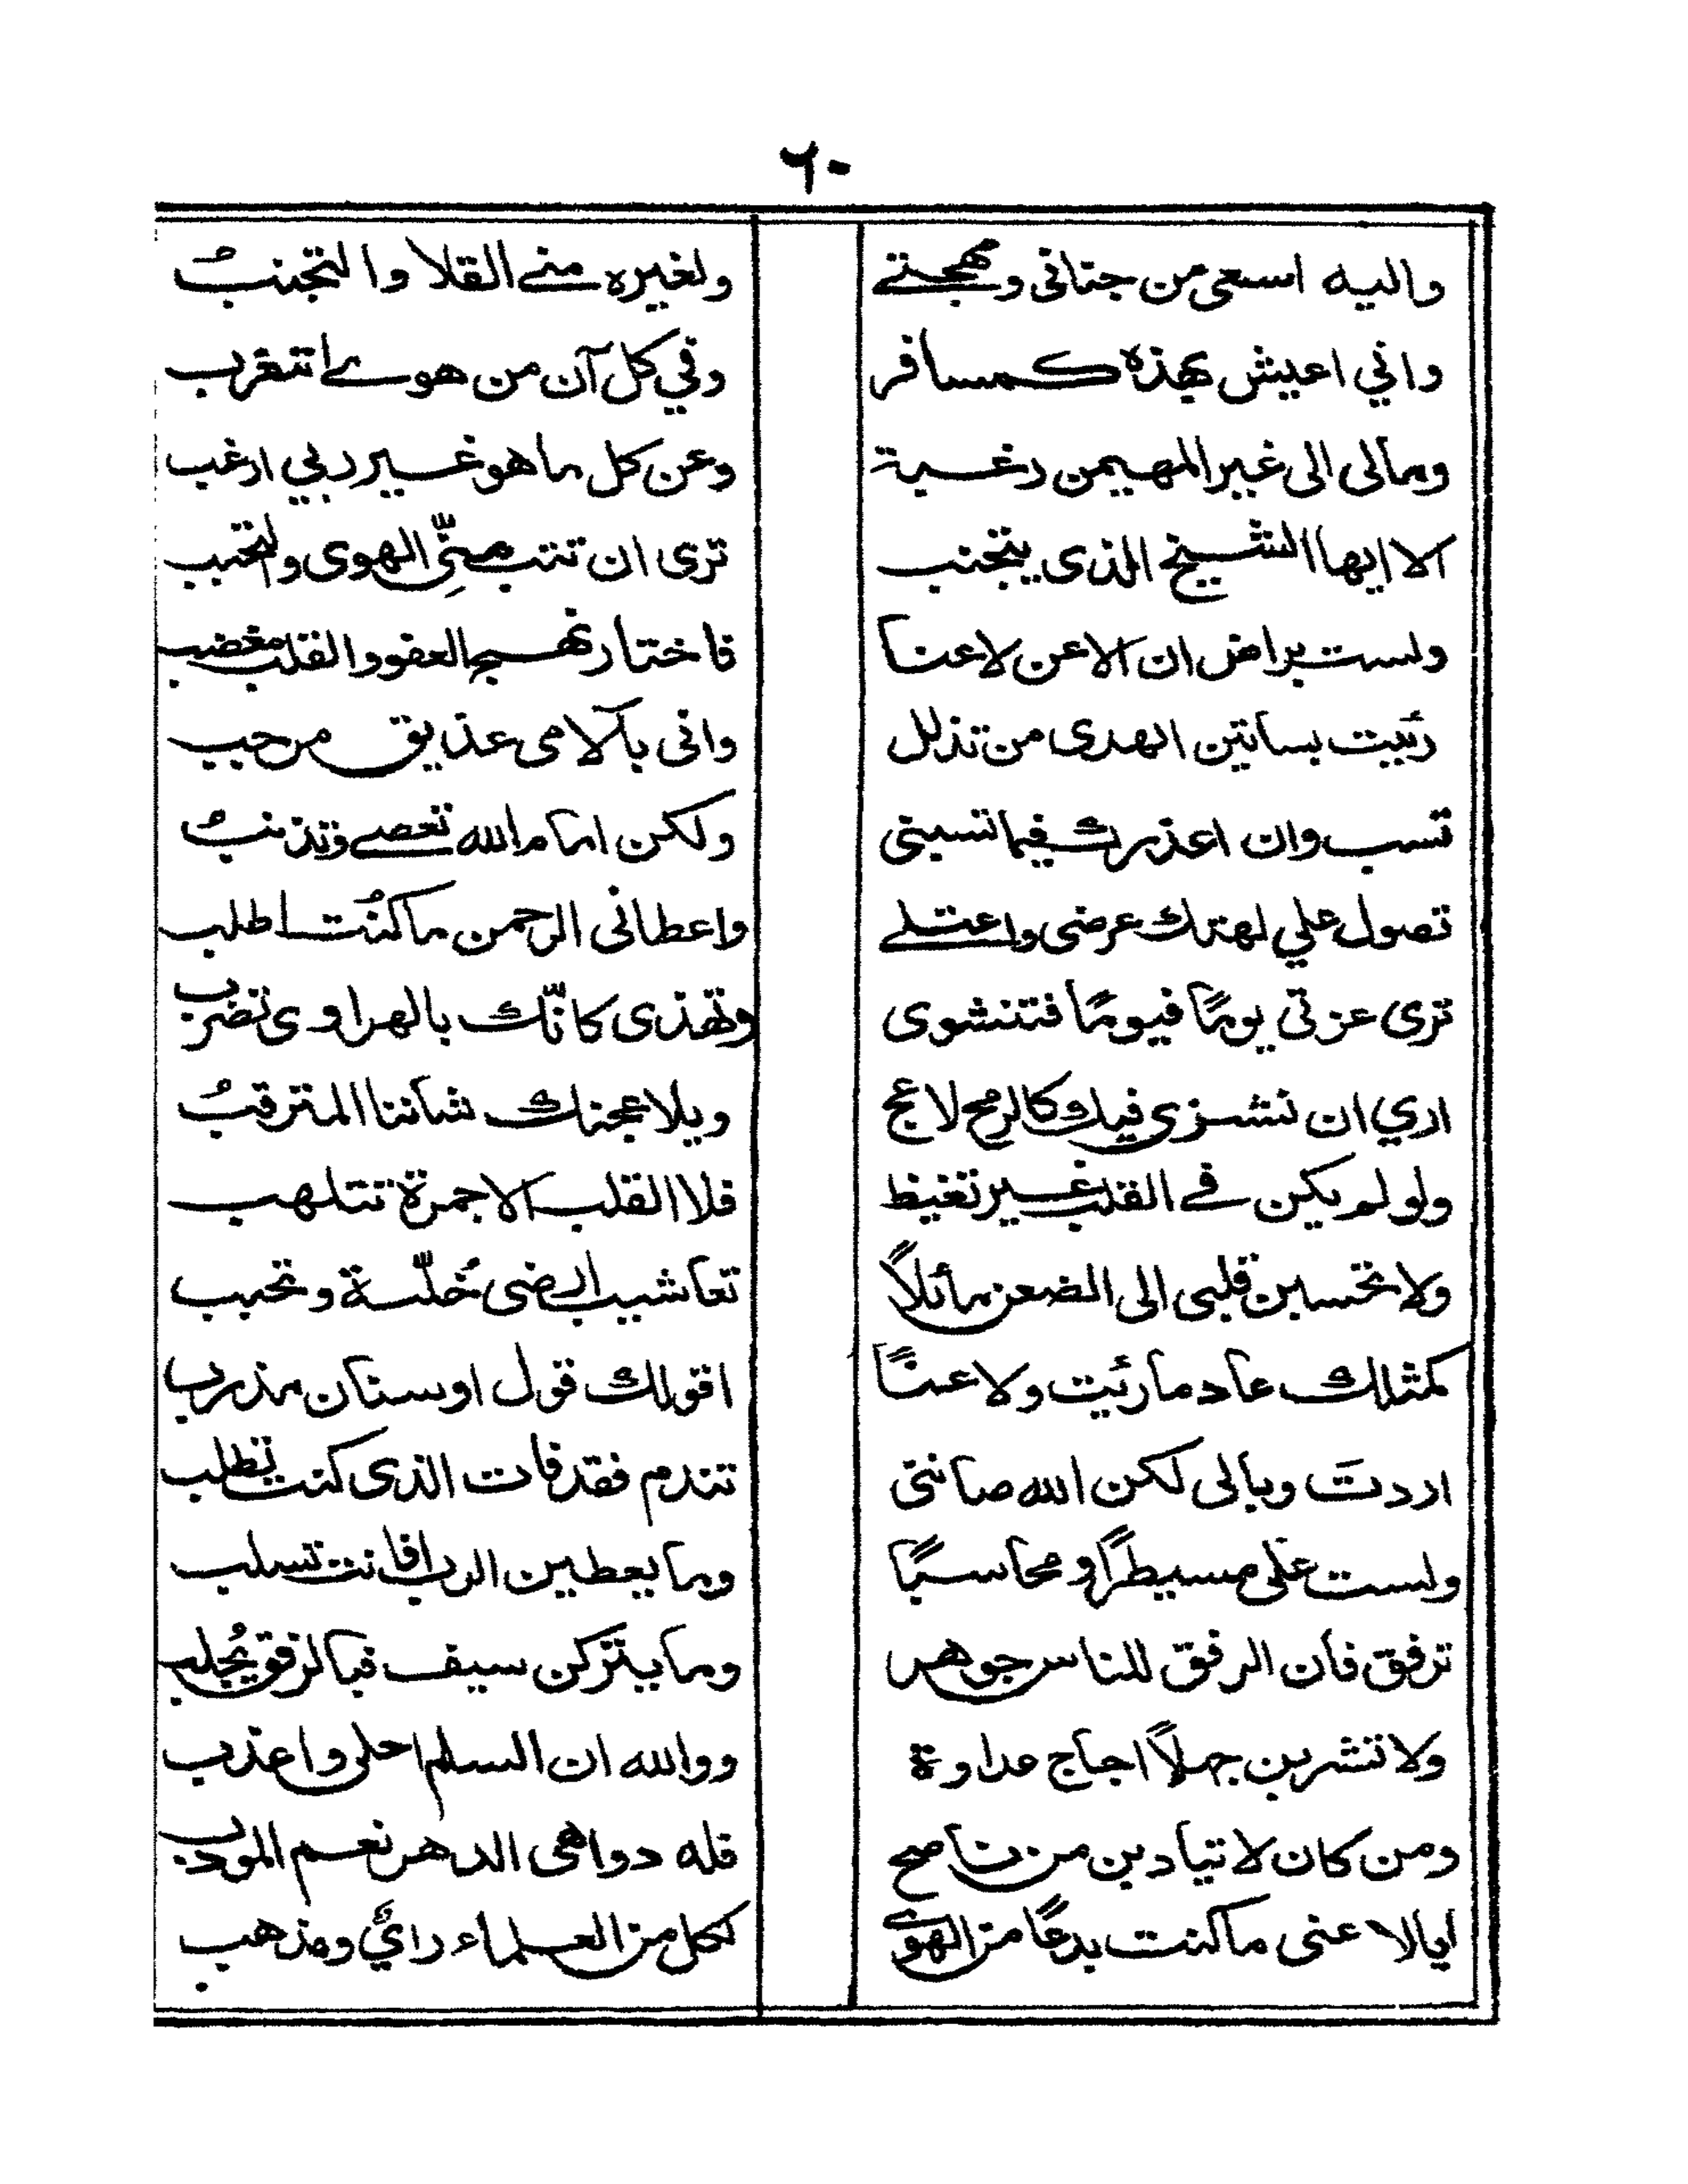 ٦٠
واليه اسعى من جنانى ومهجتے ولغيره منے القلا والتجنبُ
واني اعيش بهذه كمسافر وفي كل آن من هوے اتغرب
ومالى الى غير المهيمن رغبة وعن كل ما هو غير ربي ارغب
الا ايها الشيخ الذى يتجنب ترى ان تتب منّي الهوى والتحبب
ولست براض ان الاعن لاعنا فاختار نهج العفو والقلب مغضب
رئيت بساتين الهدى من تذلل وانى بآلامى عذيق مرحب
تسب وان اعذرك فيما تسبنى ولكن امام الله تعصے وتذنبُ
تصول علي لهتك عرضى واعتلے واعطانى الرحمن ما كنت اطلب
ترى عزتى يومًا فيومًا فتنشوى وتهذى كانّك بالهراوى تضرب
اري ان نشزى فيك كالرمح لاعج ويلاعجنك شاننا المترقبُ
ولو لم يكن فے القلب غير تغيظ فلا القلب الا جمرة تتلهب
ولا تحسبن قلبى الى الضعن مائلاً تعاشيب ارضى خُلّة وتحبب
كمثلك عاد ما رئيت ولاعنًا اقولك قول اوسنان مذرب
اردتَ وبالى لكن الله صاننى تندم فقد فات الذى كنت تطلب
ولست على مسيطرًا ومحاسبًا وما يعطين الرب افانت تسلب
ترفق فان الرفق للناس جوهر وما يتركن سيف فبالرفق يُجلب
ولا تشربن جهلاً اجاج عداوة ووالله ان السلم احلى واعذب
ومن كان لا تيادبن من ناصح فله دواهى الدهر نعم المودب
ايا لاعنى ما كنت بدعًا من الهوے لكل من العلماء رايٌ ومذهب